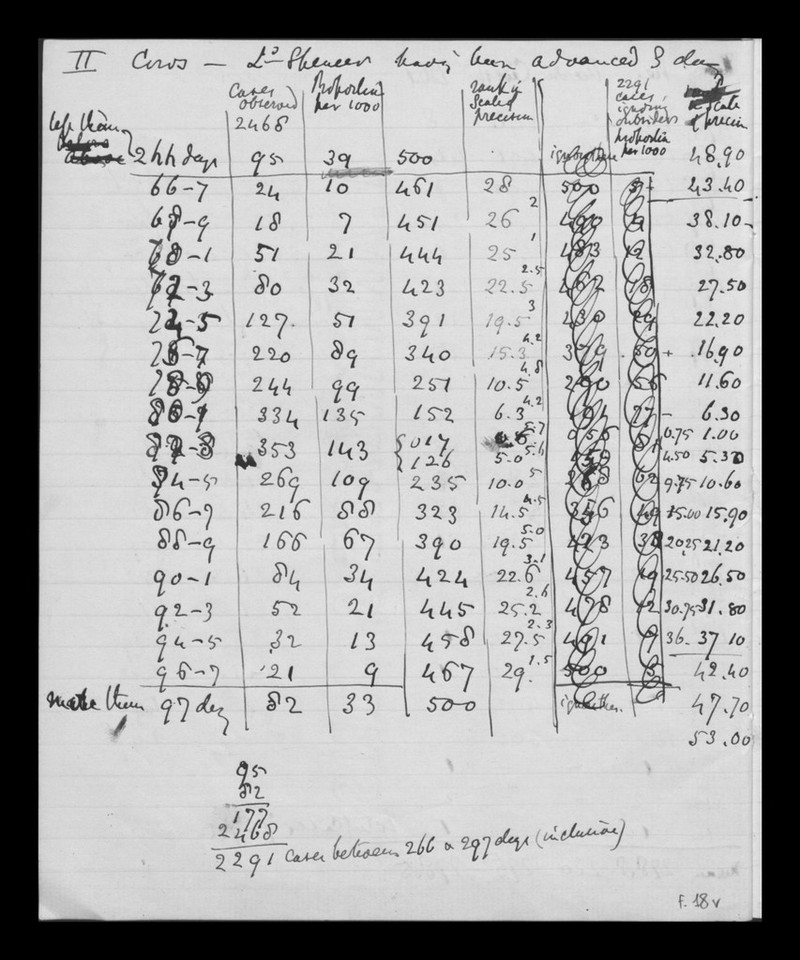 II Cows — Ld Spencer having been advanced 3 da
Cases observed 2468 Proportion per 1000 rank in scaled precision 2291 cases, ignoring outsiders proportion per 1000 scale of precision
less than 266 days 95 39 500 ignoring them 48.90
66-7 24 10 461 28 500 43.40
68-9 18 7 451 26 2 490 38.10
51 21 444 25 1 483 32.80
80 32 423 22.5 2.5 18 27.50
127 51 391 19.5 3 430 29 22.20
220 89 340 15.3 4.2 379 50 + 16.90
244 99 251 10.5 4.8 56 11.60
334 135 152 6.3 4.2 77 - 6.30
353 143 { 017 5.7 0.75 1.00
126 5.0 5.6 4.50 5.30
84-5 269 109 235 10.0 5 62 9.75 10.60
86-7 216 88 323 14.5 4.5 346 49 15.00 15.90
88-9 166 67 390 19.5 5.0 423 38 20.25 21.20
90-1 84 34 424 22.6 3.1 457 19 25.50 26.50
92-3 52 21 445 25.2 2.6 478 12 30.75 31.80
94-5 32 13 458 27.5 2.3 491 7 36. 37.10
96-7 21 9 467 29. 1.5 500 5 42.40
more than 97 days 82 33 500 ignoring them. 47.70
53.00
95
82
177
2468
2291 cases between 266 & 297 days (inclusive)
F. 18v